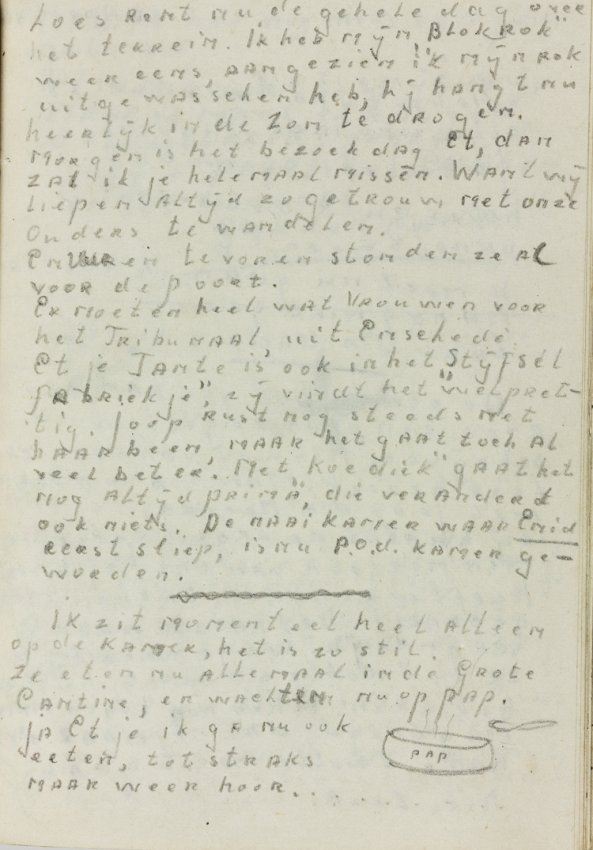 Loes rent nu de gehele dag over
het terrein. Ik heb mijn "Blokrok"
weer eens, aangezien ik mijn rok
uitgewasschen heb, hij hangt nu
heerlijk in de Zon te drogen.
Morgen is het bezoekdag Et, dan
zal ik je helemaal missen. Want wij
liepen altijd zo getrouw, met onze
Ouders te wandelen.
En uren te voren stonden ze al
voor de poort.
Er moeten heel wat Vrouwen voor
het Tribunaal, uit Enschede
Etje Tante is ook in het "Stijfsel
fabriekje", zij vindt het "wel pret-
tig. Joop rust nog steeds met
haar been, maar het gaat toch al
veel beter. Met "Koediek" gaat het
nog altijd prima, die verandert
ook niets. De naaikamer waar Enid
eerst sliep, is nu P.O.d. kamer ge-
worden.
Ik zit momenteel heel alleen
op de kamer, het is zo stil.
Ze eten nu allemaal in de Grote
Cantine, en wachten nu op pap.
Ja Etje ik ga nu ook
eeten, tot straks
maar weer hoor...
PAP